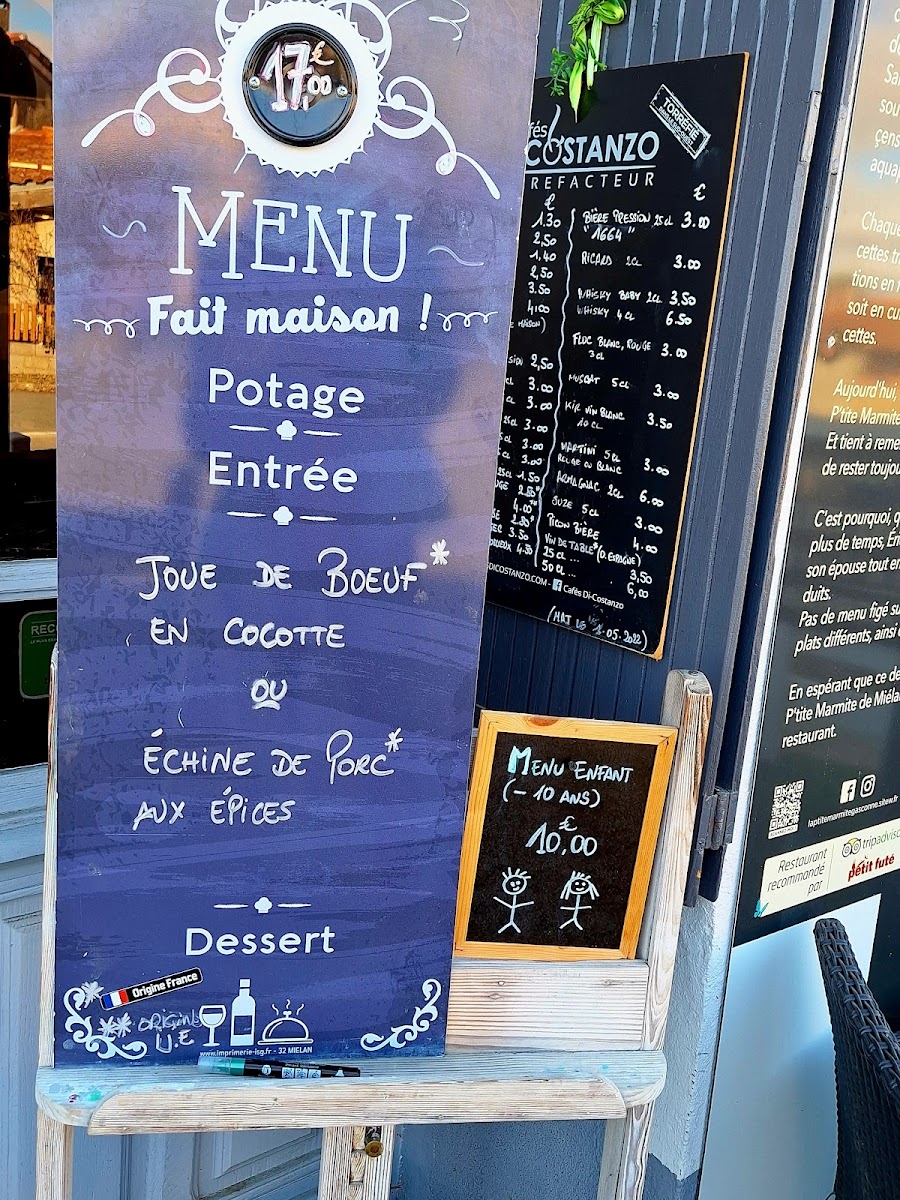 17,00€
MENU
Fait maison !
Potage
Entrée
JOUE DE BOEUF*
EN COCOTTE
OU
ÉCHINE DE PORC*
AUX ÉPICES
Dessert
* Origine France
** ORIGINE
U.E
www.imprimerie-isg.fr - 32 MIELAN
TORRÉFIÉ
COSTANZO
REFACTEUR
€ €
1.30 BIÈRE PRESSION 25 CL 3.00
2,50 "1664"
1,40 RICARD 2CL 3.00
2,50
3.50 WHISKY BABY 2CL 3,50
4,00 WHISKY 4 CL 6.50
MAISON)
FLOC BLANC, ROUGE 3.00
3 CL
2,50
3.00 MUSCAT 5 CL 3.00
3.00 KIR VIN BLANC 3.50
10 CL
3.00
3.00 MARTINI 5 CL 3.00
3.00 ROUGE OU BLANC
1.50 ARMAGNAC 2CL 6.00
2.50 SUZE 5 CL 3.00
4.00 PICON BIÈRE 4.00
2.50 VIN DE TABLE* (D. ESPAGNE)
3.50 25 CL ... 3,50
4.50 50 CL ... 6,00
DICOSTANZO.COM - Cafés Di-Costanzo
05.2022)
MENU ENFANT
(- 10 ANS)
10,00€
Chaque
cettes
tions en
soit en
cettes.
Aujourd'hui,
P'tite Marmite
Et tient à
de rester
C'est pourquoi,
plus de temps,
son épouse tout
duits.
Pas de menu figé
plats différents, ainsi
En espérant que ce
P'tite Marmite de
restaurant.
laptitemarmitegasconne.sitew.fr
Restaurant
recommandé
par
petit futé